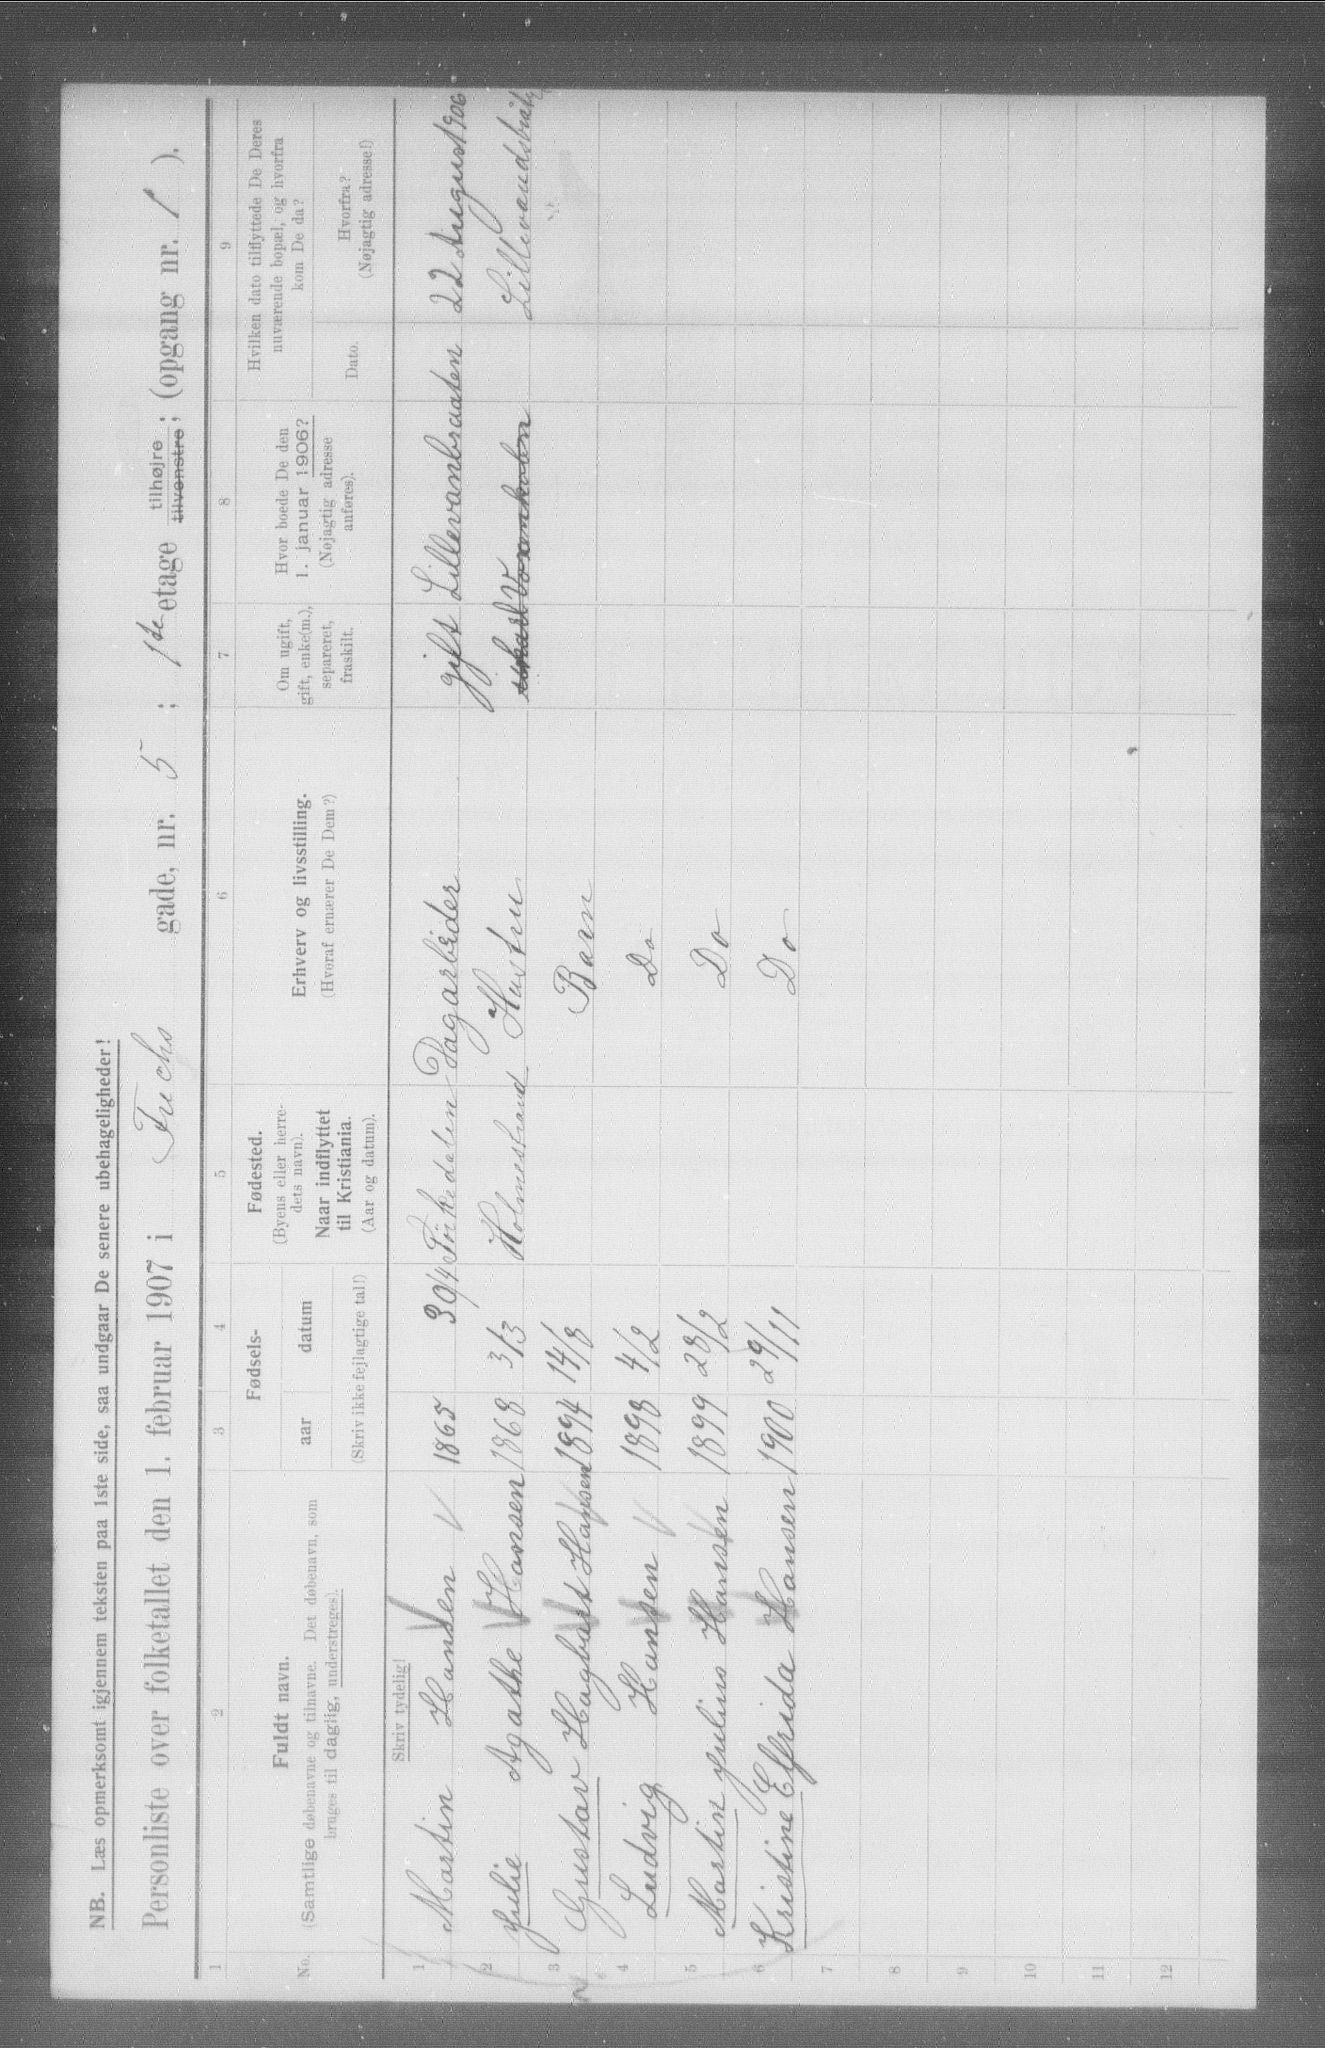 NB. Læs opmerksomt igjennem teksten paa 1ste side, saa undgaar De senere ubehageligheder!
Personliste over folketallet den 1. februar 1907 i Fuchs gade, nr. 5 ; 1ste etage tilhøjre tilvenstre ; (opgang nr. 1 ).
1 2 3 4 5 6 7 8 9
No.
Fuldt navn.
(Samtlige døbenavne og tilnavne. Det døbenavn, som
bruges til daglig, understreges).
Fødsels-
aar datum
(Skriv ikke fejlagtige tal!)
Fødested.
(Byens eller herre-
dets navn).
Naar indflyttet
til Kristiania.
(Aar og datum).
Erhverv og livsstilling.
(Hvoraf ernærer De Dem?)
Om ugift,
gift, enke(m.),
separeret,
fraskilt.
Hvor boede De den
1. januar 1906?
(Nøjagtig adresse
anføres).
Hvilken dato tilflyttede De Deres
nuværende bopæl, og hvorfra
kom De da?
Dato.
Hvorfra?
(Nøjagtig adresse!)
Skriv tydelig!
1 Martin Hansen 1865 30/4 Dagarbeider gift Lillevanbraaten 22 August 1906
2 Julie Agathe Hansen 1868 3/3 Holmestrand Hustru
3 Gustav Hagbart Hansen 1894 14/8 Barn
4 Ludvig Hansen 1898 4/2 Do
5 Martin Julius Hansen 1899 28/2 Do
6 Kristine Elfrida Hansen 1900 29/11 Do
7
8
9
10
11
12